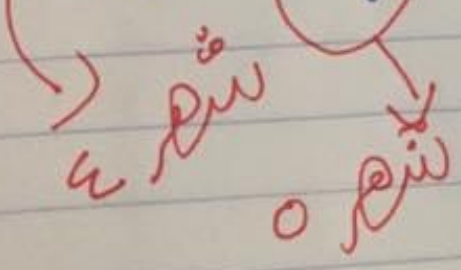 شهر ٤
شهر ٥